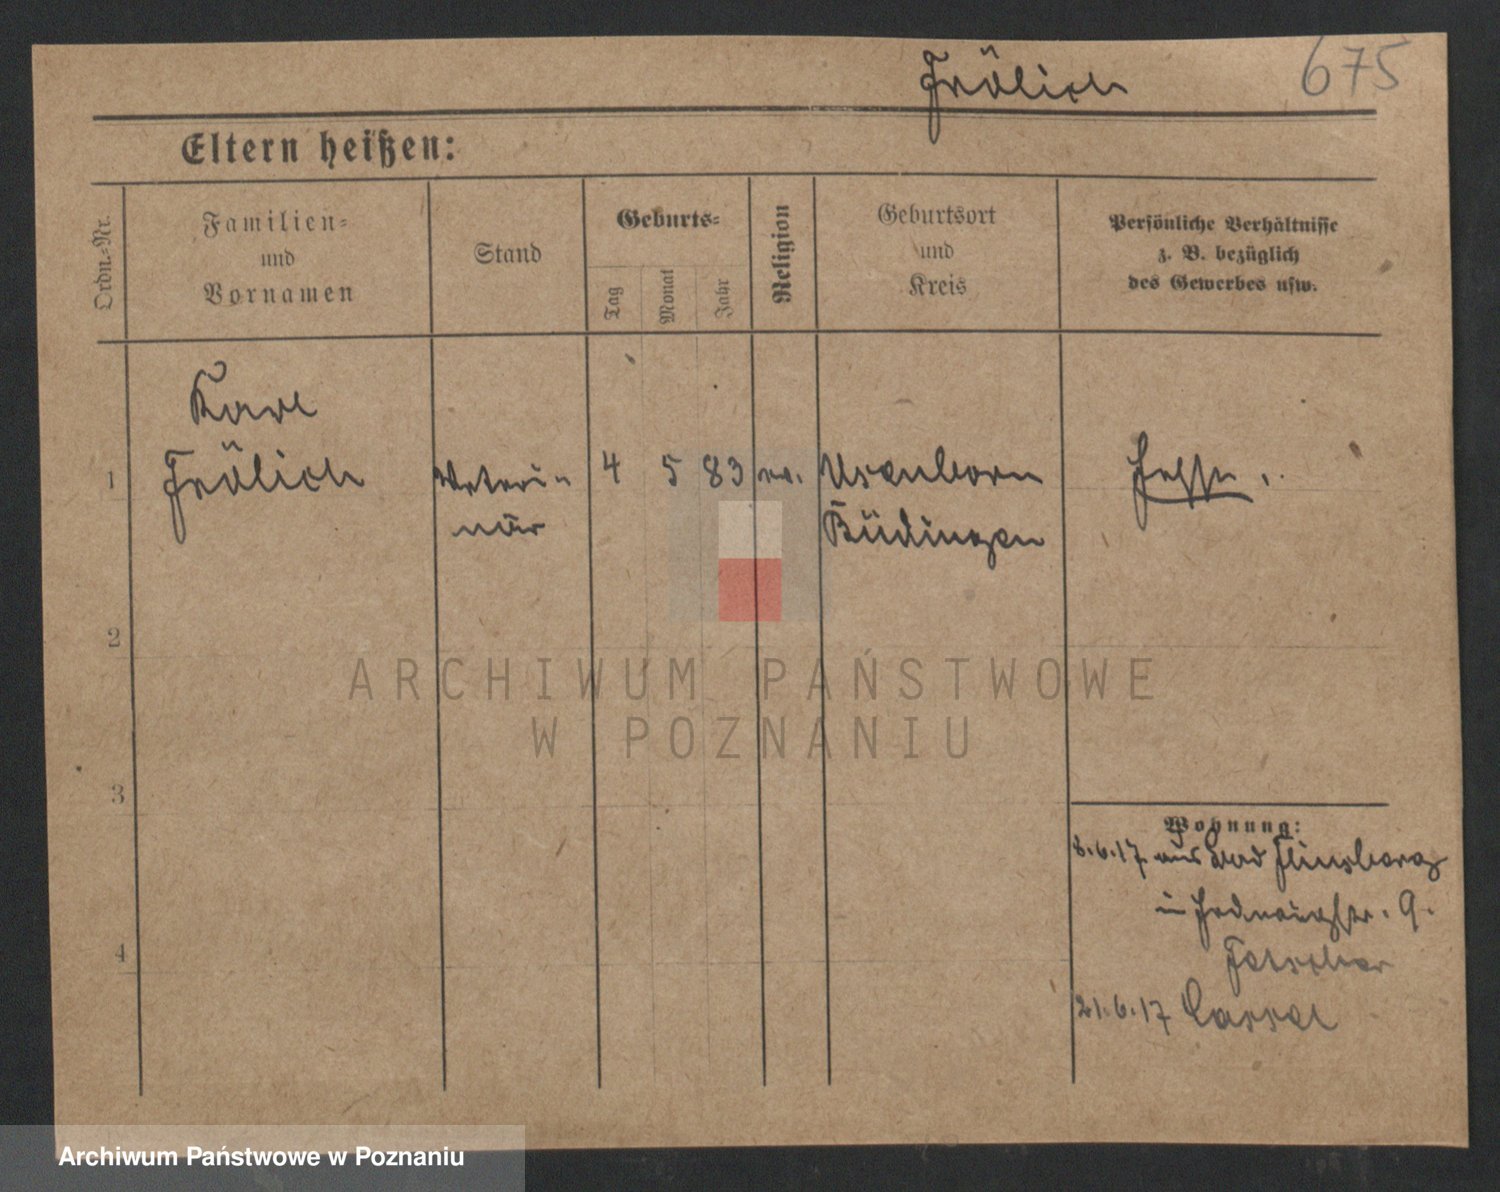 Frölich
675
Eltern heißen:
Ordn.-Nr.
Familien-
und
Vornamen
Stand
Geburts-
Tag
Monat
Jahr
Religion
Geburtsort
und
Kreis
Persönliche Verhältnisse
z. B. bezüglich
des Gewerbes usw.
Karl
1 Frölich Veteri- 4 5 83 ev. Usenborn Hesse.
när Büdingen
2
3
4
Wohnung:
8.6.17 aus Bad Flinsberg
in Hedwigstr. 9.
21.6.17 Cassel
ARCHIWUM PAŃSTWOWE
W POZNANIU
Archiwum Państwowe w Poznaniu